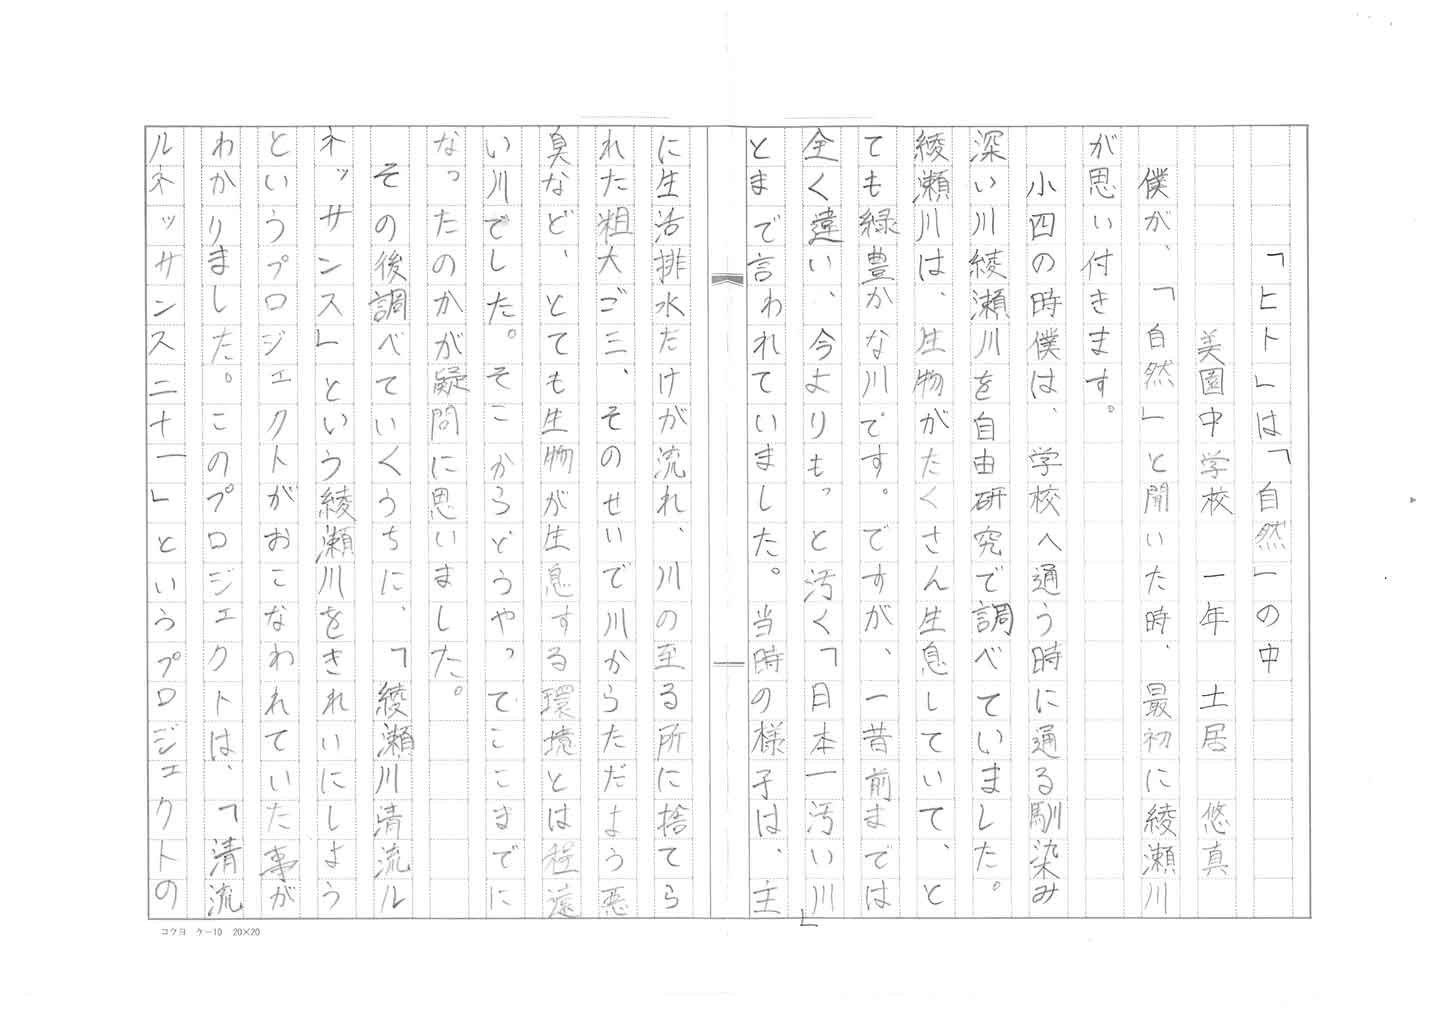 「ヒト」は「自然」の中
美園中学校　一年　土居　悠真
僕が、「自然」と聞いた時、最初に綾瀬川
が思い付きます。
小四の時僕は、学校へ通う時に通る馴染み
深い川綾瀬川を自由研究で調べていました。
綾瀬川は、生物がたくさん生息していて、と
ても緑豊かな川です。ですが、一昔前までは
全く違い、今よりも。っと汚く「日本一汚い川」
とまで言われていました。当時の様子は、主
に生活排水だけが流れ、川の至る所に捨てら
れた粗大ゴミ、そのせいで川からただよう悪
臭など、とても生物が生息する環境とは程遠
い川でした。そこからどうやってここまでに
なったのかが疑問に思いました。
その後調べていくうちに、「綾瀬川清流ル
ネッサンス」という綾瀬川をきれいにしよう
というプロジェクトがおこなわれていた事が
わかりました。このプロジェクトは、「清流
ルネッサンス二十一」というプロジェクトの
コクヨ　ケー10　20×20